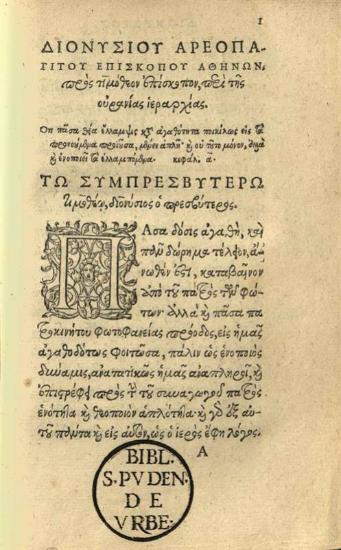 1
ΔΙΟΝΥΣΙΟΥ ΑΡΕΟΠΑ-
ΓΙΤΟΥ ΕΠΙΣΚΟΠΟΥ ΑΘΗΝΩΝ,
πρὸς τιμόθεον ἐπίσκοπον, περὶ τῆς
οὐρανίας ἱεραρχίας.
Οτι πᾶσα θεία ἔλλαμψις κατ' ἀγαθότητα ποικίλως εἰς τὰ
προνοούμενα προϊοῦσα, μένει ἁπλῆ· καὶ οὐ τοῦτο μόνον, ἀλλὰ
καὶ ἑνοποιεῖ τὰ ἐλλαμπόμενα. κεφάλ. α.
ΤΩ ΣΥΜΠΡΕΣΒΥΤΕΡΩ
τιμοθέῳ, διονύσιος ὁ πρεσβύτερος.
ΠΑσα δόσις ἀγαθὴ, καὶ
πᾶν δώρημα τέλειον, ἄ-
νωθέν ἐστι, καταβαῖνον
ἀπὸ τοῦ πατρὸς τῶν φώ-
των· ἀλλὰ καὶ πᾶσα πα
τροκινήτου φωτοφανείας πρόοδος, εἰς ἡμᾶς
ἀγαθοδότως φοιτῶσα, πάλιν ὡς ἑνοποιὸς
δύναμις, ἀνατατικῶς ἡμᾶς ἀναπληροῖ, καὶ
ἐπιστρέφει πρὸς τὴν τοῦ συναγωγοῦ πατρὸς
ἑνότητα καὶ θεοποιὸν ἁπλότητα· καὶ γὰρ ἐξ αὐ-
τοῦ πάντα καὶ εἰς αὐτὸν, ὡς ὁ ἱερὸς ἔφη λόγος.
A
BIBL
S. PVDEN.
DE
VRBE.